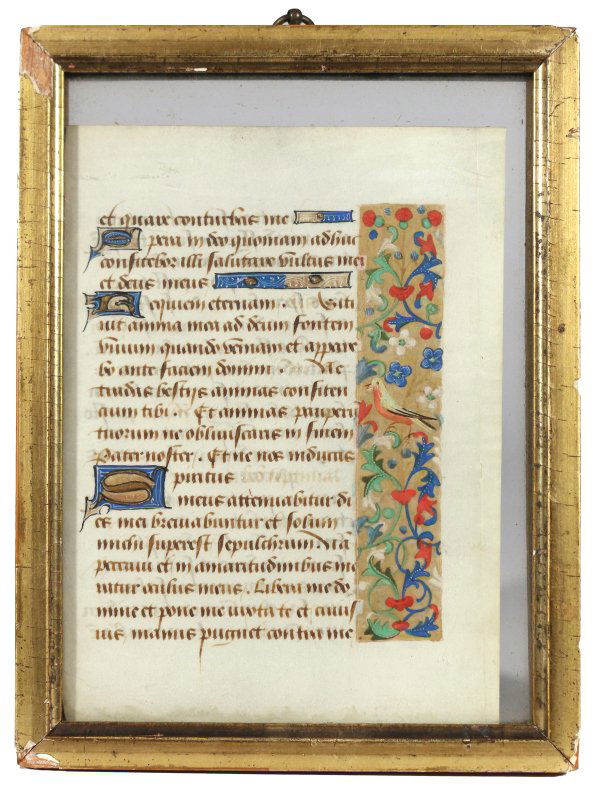 et quare conturbas me
Spera in deo quoniam adhuc
confitebor illi salutare vultus mei
et deus meus
Requiem eternam. Siti
uit anima mea ad deum fontem
viuum quando veniam et appare
bo ante faciem domini. Ne tra
tradas bestiis animas confiten
cium tibi. Et animas pauperū
tuorum ne obliuiscaris in finem
Pater noster. Et ne nos inducas
Spiritus
meus attenuabitur di
es mei breuiabuntur et solum
michi superest sepulchrum. Nō
peccaui et in amaritudinibus mo
ratur oculus meus. Libera me do
mine et pone me iuxta te et cuius
uis manus pugnet contra me